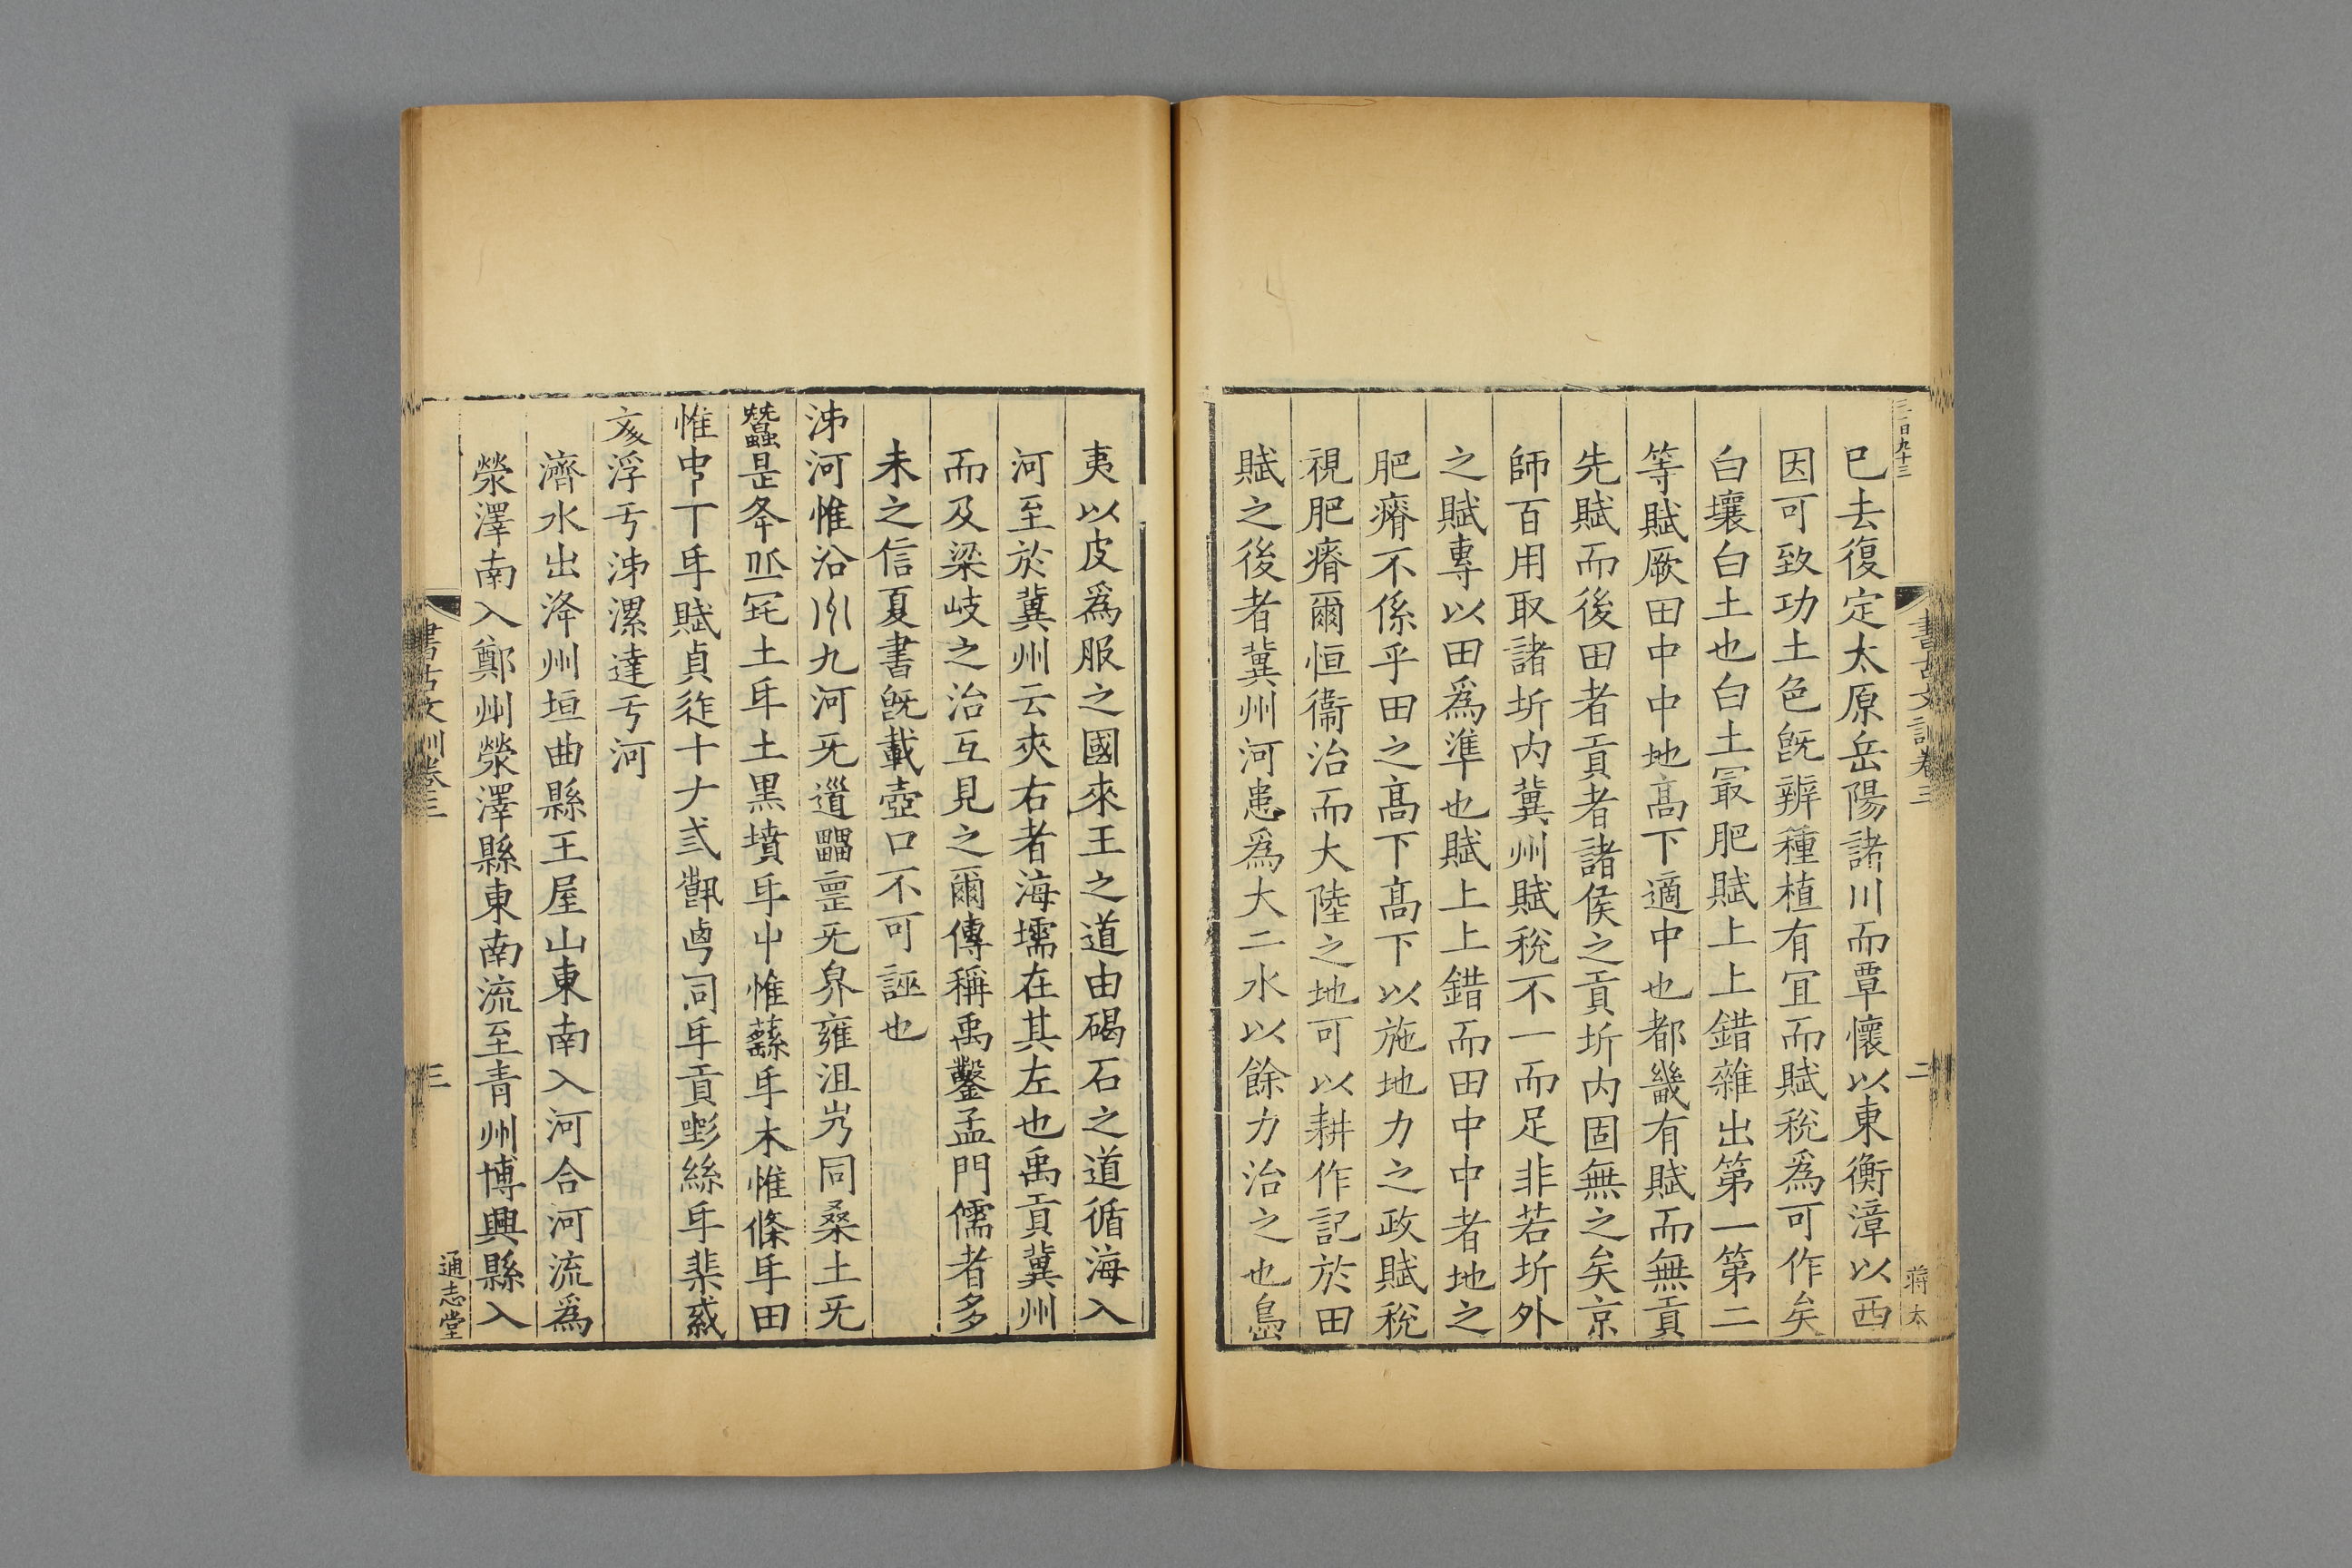 三百九十三
書古文訓卷三
二
蔣太
已去復定太原岳陽諸川而覃懷以東衡漳以西
因可致功土色旣辨種植有宜而賦稅爲可作矣
白壤白土也白土最肥賦上上錯雜出第一第二
等賦厥田中中地高下適中也都畿有賦而無貢
先賦而後田者貢者諸侯之貢圻内固無之矣京
師百用取諸圻内冀州賦稅不一而足非若圻外
之賦專以田爲準也賦上上錯而田中中者地之
肥瘠不係乎田之高下高下以施地力之政賦稅
視肥瘠爾恒衞治而大陸之地可以耕作記於田
賦之後者冀州河患爲大二水以餘力治之也島
夷以皮爲服之國來王之道由碣石之道循海入
河至於冀州云夾右者海壖在其左也禹貢冀州
而及梁岐之治互見之爾傳稱禹鑿孟門儒者多
未之信夏書旣載壺口不可誣也
泲河惟沿𠔉九河旡𨕥靁䨪旡𣊫雍沮𡵆同桑土旡
蠶是夅丠宅土𠂹土黒墳𠂹屮惟蘨𠂹木惟條𠂹田
惟中丅𠂹賦貞𨒌十𠂇弎𩐁𠧟同𠂹貢㯃絲𠂹棐㦯
彣浮亐泲漯達亐河
濟水出洚州垣曲縣王屋山東南入河合河流爲
滎澤南入鄭州滎澤縣東南流至青州博興縣入
書古文訓卷三
三
通志堂